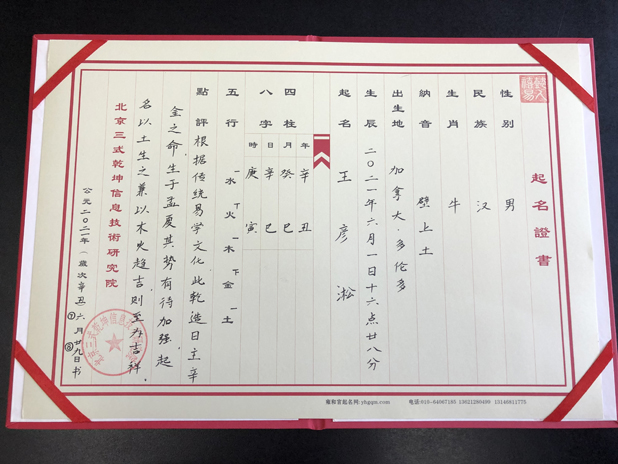 起名證書
性別 男
民族 汉
生肖 牛
納音 壁上土
出生地 加拿大·多伦多
生辰 二〇二一年六月一日十六点廿八分
起名 王彦淞
四柱 年 月 日 時
八字 辛丑 癸巳 辛巳 庚寅
五行 一水 丁火 一木 下金 一土
點評 根据传统易学文化此乾造日主辛
金之命生于孟夏其势有待加强.起
名以土生之兼以木火趋吉,则至为吉祥.
北京三式乾坤信息技術研究院
公元二〇二一年(歲次辛丑)六月廿九日书
⑦ ⑧
雍和宫起名网:yhgqm.com 电话:010-84067185 13621280490 15146911775